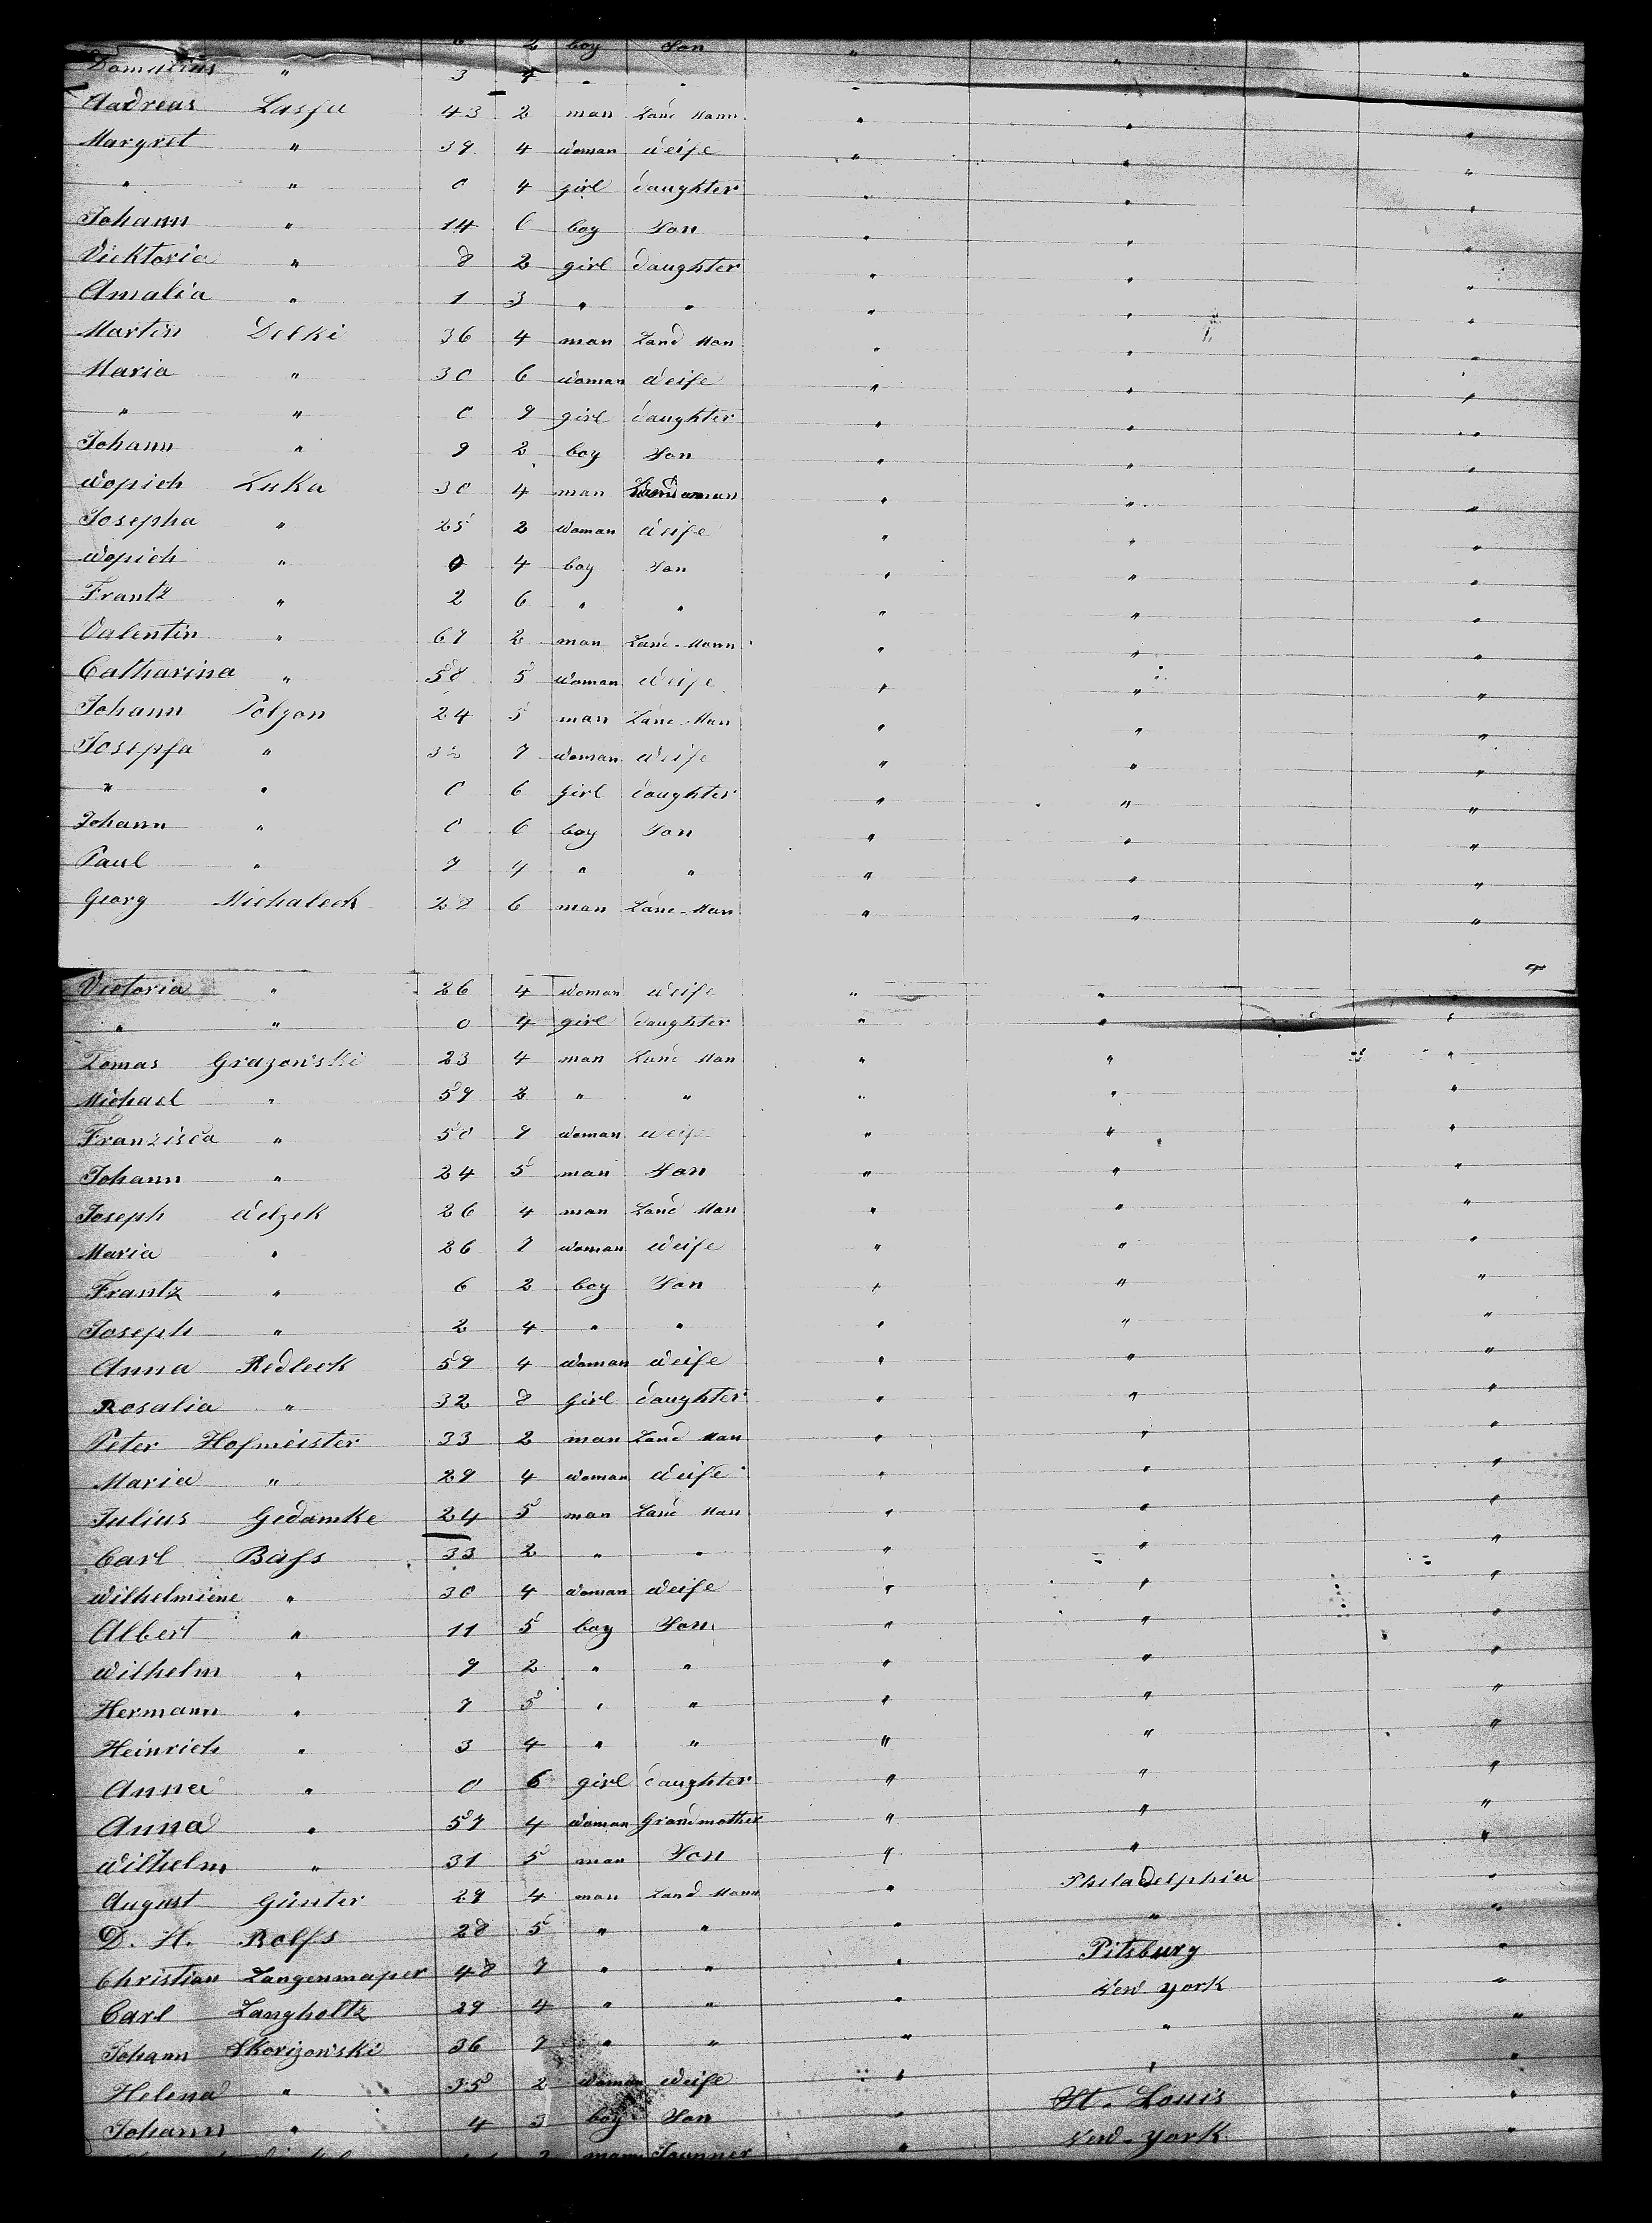 6 2 boy Son " " "
Damasius " 3 4 " " " " "
Andreas Lasfa 43 2 man Land Mann " " "
Margret " 39 4 woman Weife " " "
" " 0 4 girl daughter " " "
Johann " 14 6 boy Son " " "
Vicktoria " 8 2 girl daughter " " "
Amalia " 1 3 " " " " "
Martin Delki 36 4 man Land Man " " "
Maria " 30 6 woman Weife " " "
" " 0 9 girl daughter " " "
Johann " 9 2 boy Son " " "
Wopich Luka 30 4 man Landaman " " "
Josepha " 25 2 woman Weife " " "
Wopich " 0 4 boy Son " " "
Frantz " 2 6 " " " " "
Valentin " 67 2 man Land-Mann " " "
Catharina " 58 5 woman Weife " " "
Johann Polzon 24 5 man Land-Man " " "
Josepfa " 32 7 woman Weife " " "
" " 0 6 girl daughter " " "
Johann " 0 6 boy Son " " "
Paul " 7 4 " " " " "
Georg Michaleck 28 6 man Land-Man " " "
Victoria " 26 4 woman Weife " " "
" " 0 4 girl daughter " " "
Tomas Grazonski 23 4 man Land Man " " "
Michael " 59 2 " " " " "
Franzisca " 50 7 woman Weife " " "
Johann " 24 5 man Son " " "
Joseph Welzek 26 4 man Land Man " " "
Maria " 26 7 woman Weife " " "
Frantz " 6 2 boy Son " " "
Joseph " 2 4 " " " " "
Anna Redleck 59 4 woman Weife " " "
Rosalia " 32 8 girl daughter " " "
Peter Hofmeister 33 2 man Land Man " " "
Maria " 29 4 woman Weife " " "
Julius Gedamke 24 5 man Land Man " " "
Carl Bäfs 33 2 " " " " "
Wilhelmiene " 30 4 woman Weife " " "
Albert " 11 5 boy Son " " "
Wilhelm " 9 2 " " " " "
Hermann " 7 5 " " " " "
Heinrich " 3 4 " " " " "
Anna " 0 6 girl daughter " " "
Anna " 57 4 woman Grandmother " " "
Wilhelm " 31 5 man Son " " "
August Günter 29 4 man Land Mann " Philadelphia "
D. H. Rolfs 28 5 " " " " "
Christian Langenmaper 48 7 " " " Pitsburg "
Carl Langholtz 29 4 " " " New York "
Johann Skorizonski 36 7 " " " " "
Helena " 35 2 woman Weife " " "
Johann " 4 3 boy Son " St. Louis "
2 mann " New-York "